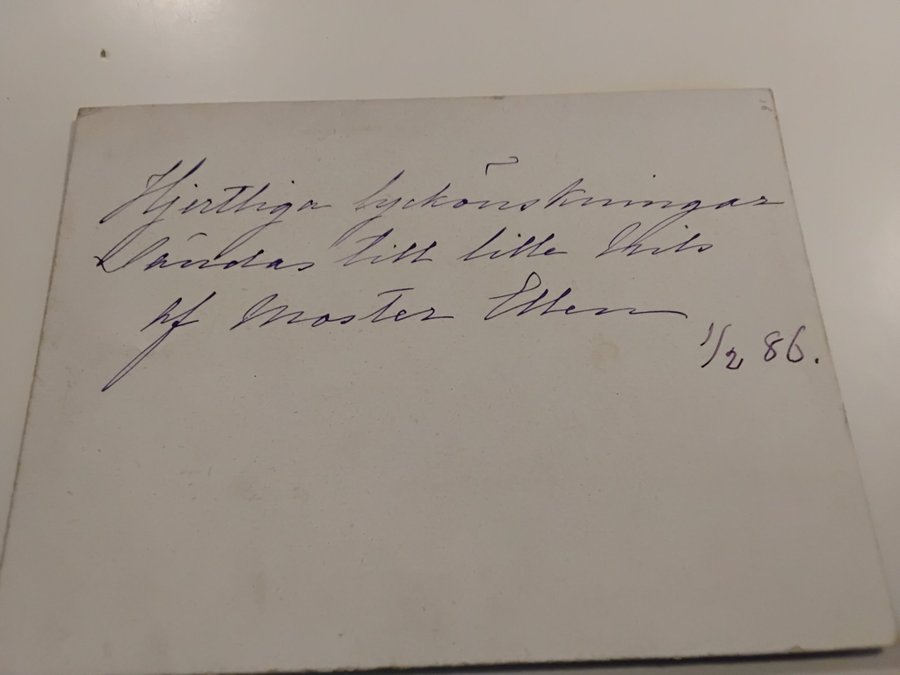 Hjertliga lyckönskningar
Sändas till lille Nils
af Moster Ellen
1/2 86.